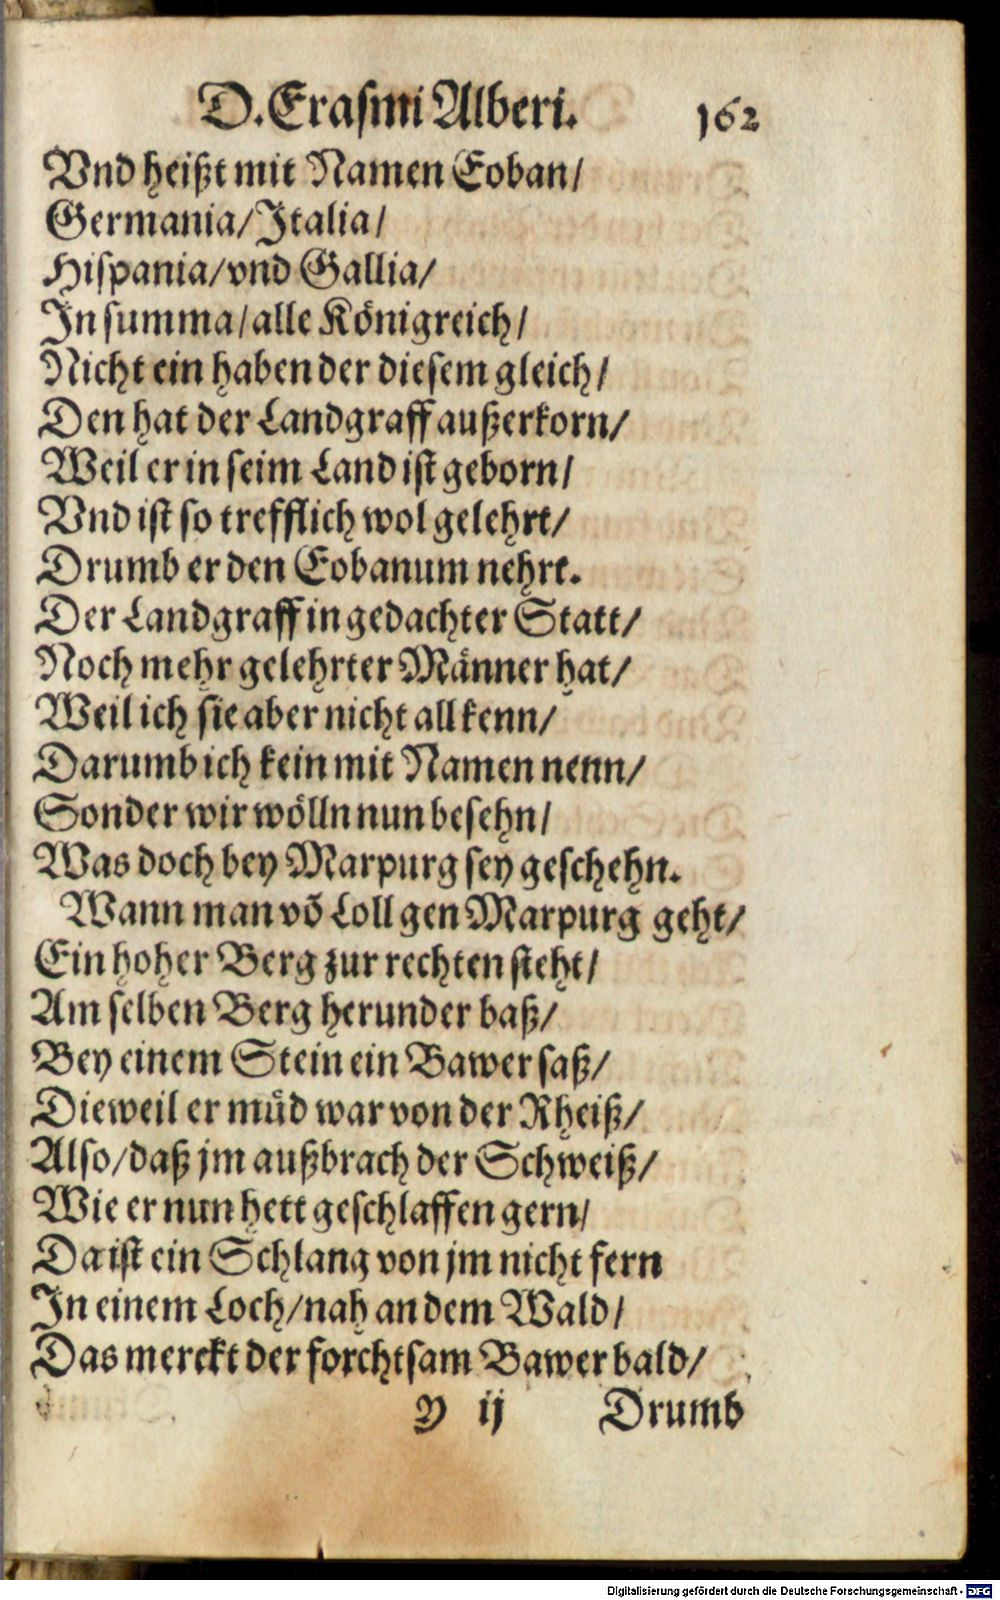 D. Erasmi Alberi. 162
Vnd heißt mit Namen Eoban/
Germania/Italia/
Hispania/vnd Gallia/
In summa/alle Königreich/
Nicht ein haben der diesem gleich/
Den hat der Landgraff außerkorn/
Weil er in seim Land ist geborn/
Vnd ist so trefflich wol gelehrt/
Drumb er den Eobanum nehrt.
Der Landgraff in gedachter Statt/
Noch mehr gelehrter Männer hat/
Weil ich sie aber nicht all kenn/
Darumb ich kein mit Namen nenn/
Sonder wir wölln nun besehn/
Was doch bey Marpurg sey geschehn.
Wann man võ Loll gen Marpurg geht/
Ein hoher Berg zur rechten steht/
Am selben Berg herunder baß/
Bey einem Stein ein Bawer saß/
Dieweil er müd war von der Rheiß/
Also/daß jm außbrach der Schweiß/
Wie er nun hett geschlaffen gern/
Da ist ein Schlang von jm nicht fern
In einem Loch/nah an dem Wald/
Das merckt der forchtsam Bawer bald/
y ij Drumb
Digitalisierung gefördert durch die Deutsche Forschungsgemeinschaft - DFG